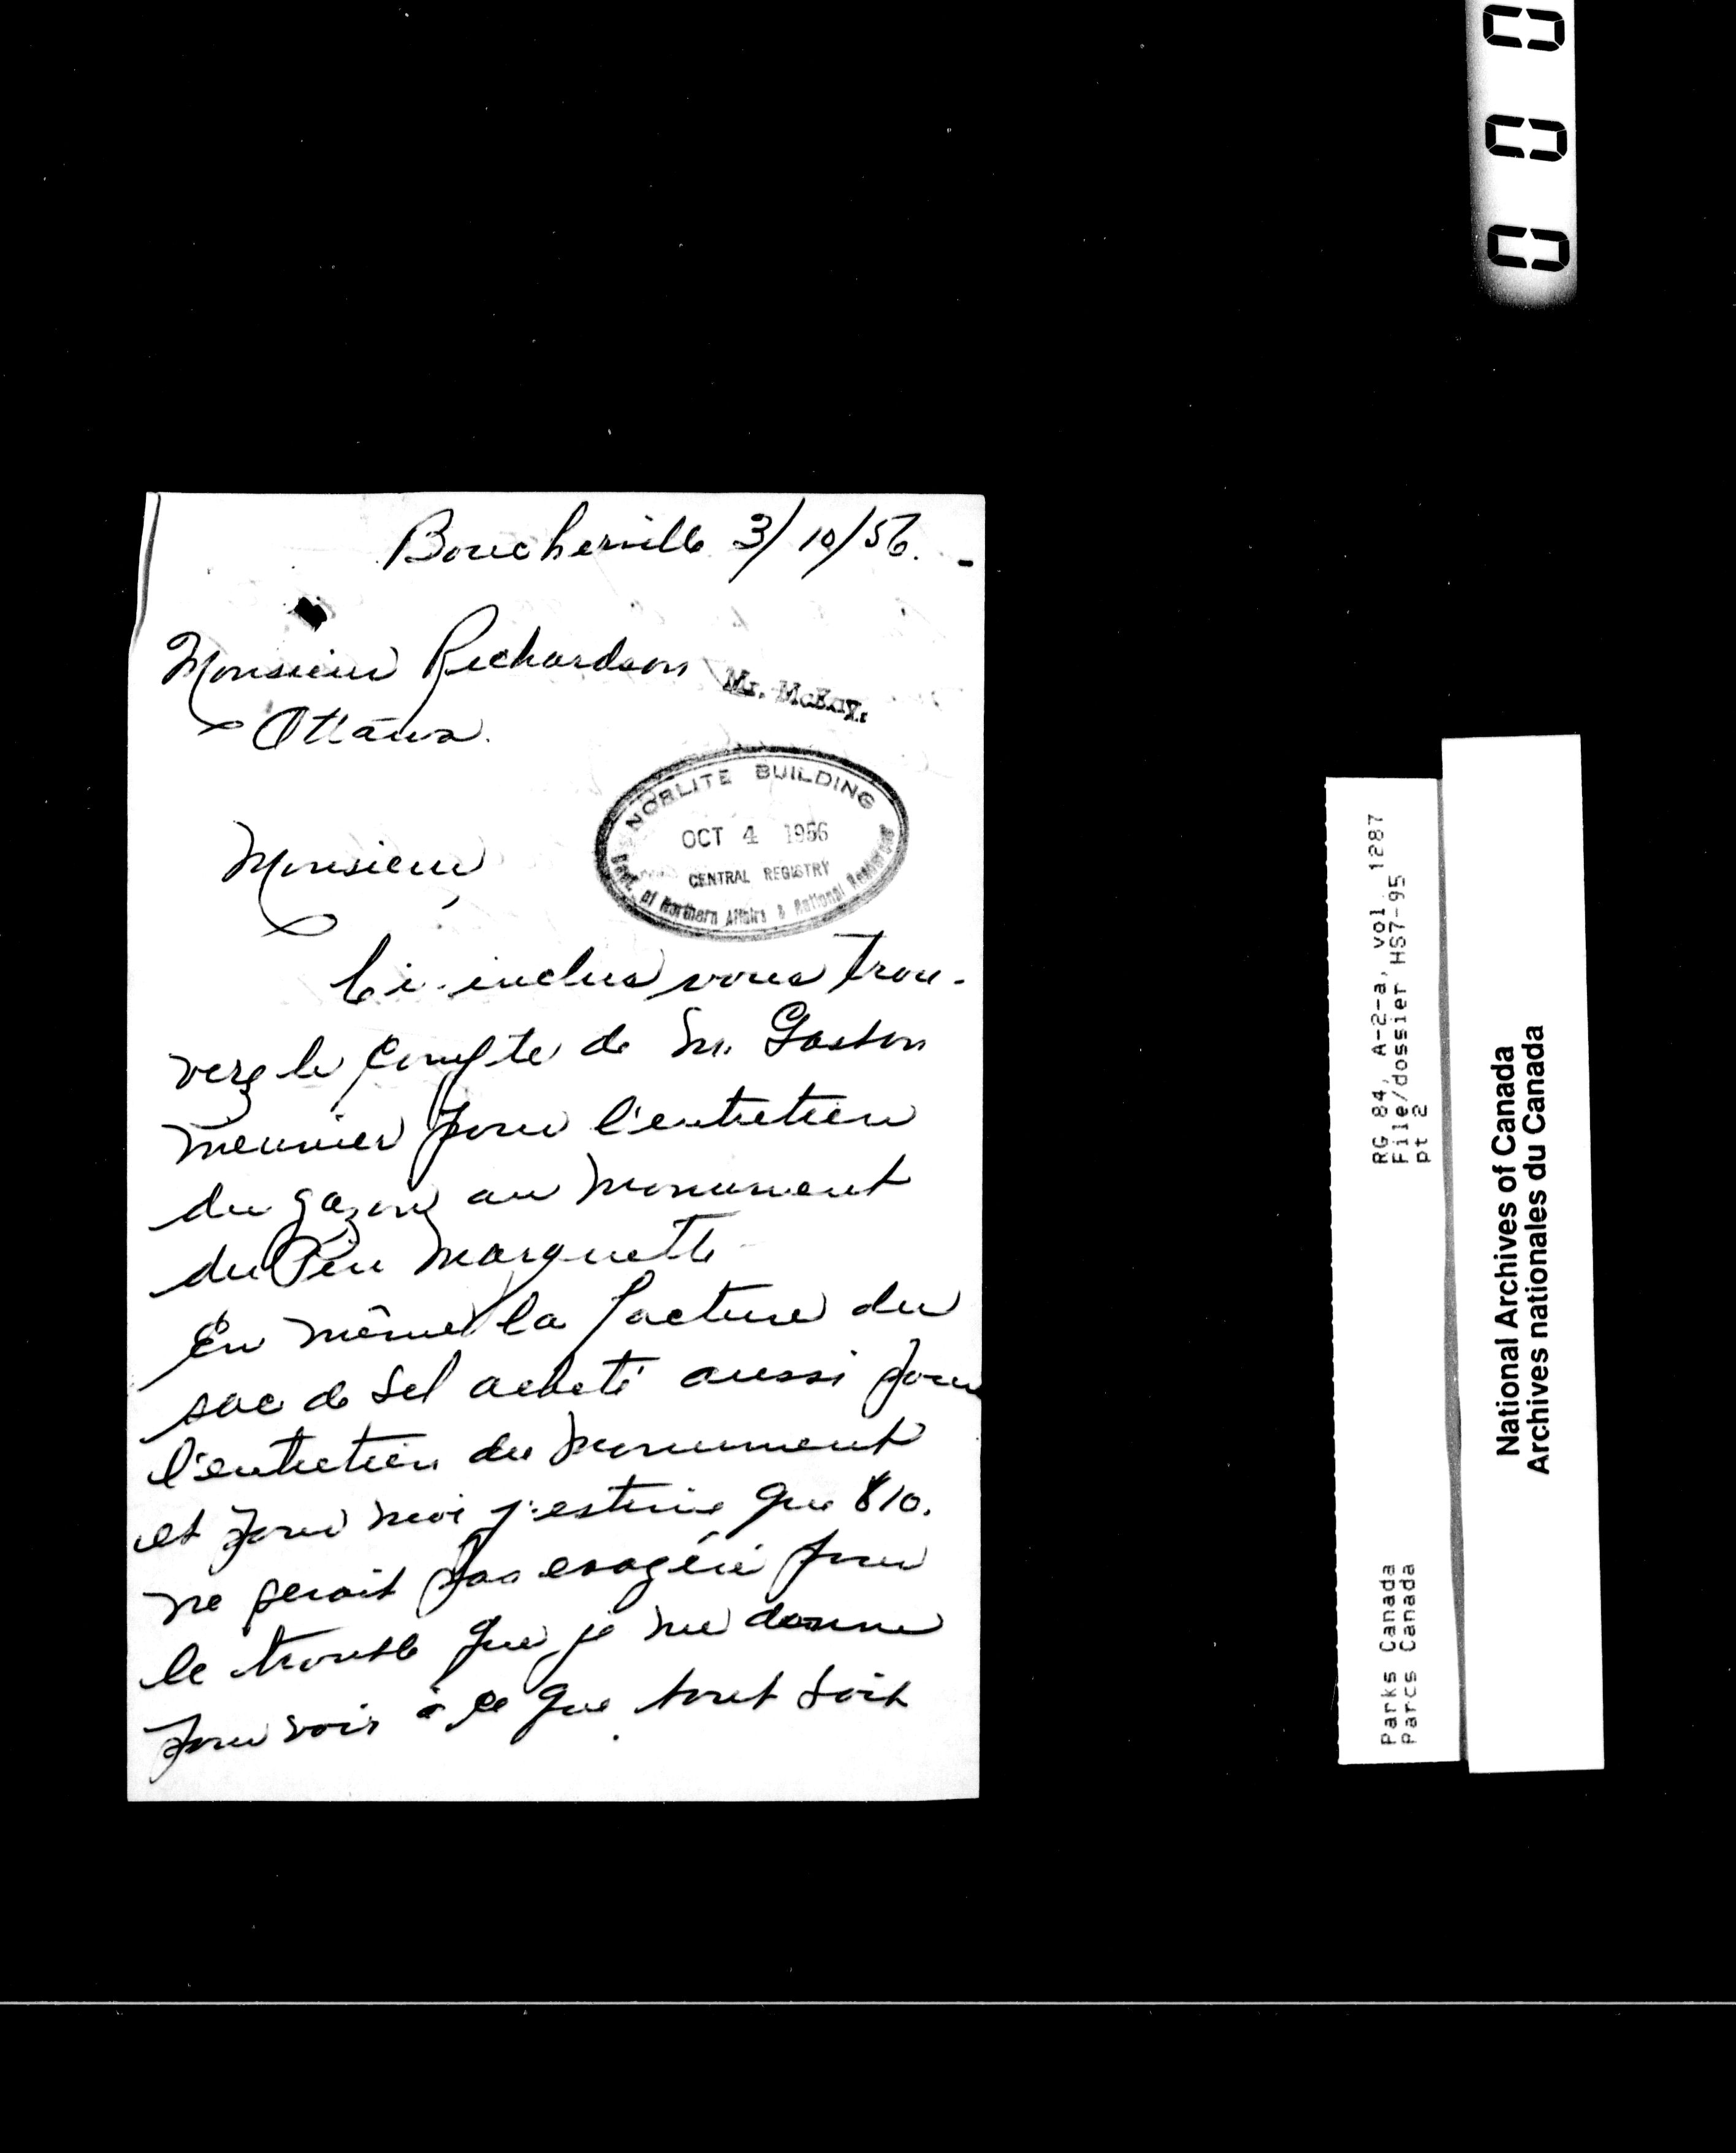 Boucherville 3/10/56.-
Monsieur Richardson
Mr. McKay.
Ottawa.
NORLITE BUILDING
OCT 4 1956
CENTRAL REGISTRY
Dept. of Northern Affairs & National Resources
Monsieur,
Ci-inclus vous trou-
verez le compte de M. Gaston
Meunier pour l'entretien
du gazon au monument
du Père Marquette
En même la facture du
sac de sel acheté aussi pour
l'entretien du monument
et pour moi j'estime que $10.
ne serait pas exagéré pour
le trouble que je me donne
pour voir à ce que tout soit
000
RG 84, A-2-a, vol. 1287
File/dossier HS7-95
pt 2
Parks Canada
Parcs Canada
National Archives of Canada
Archives nationales du Canada